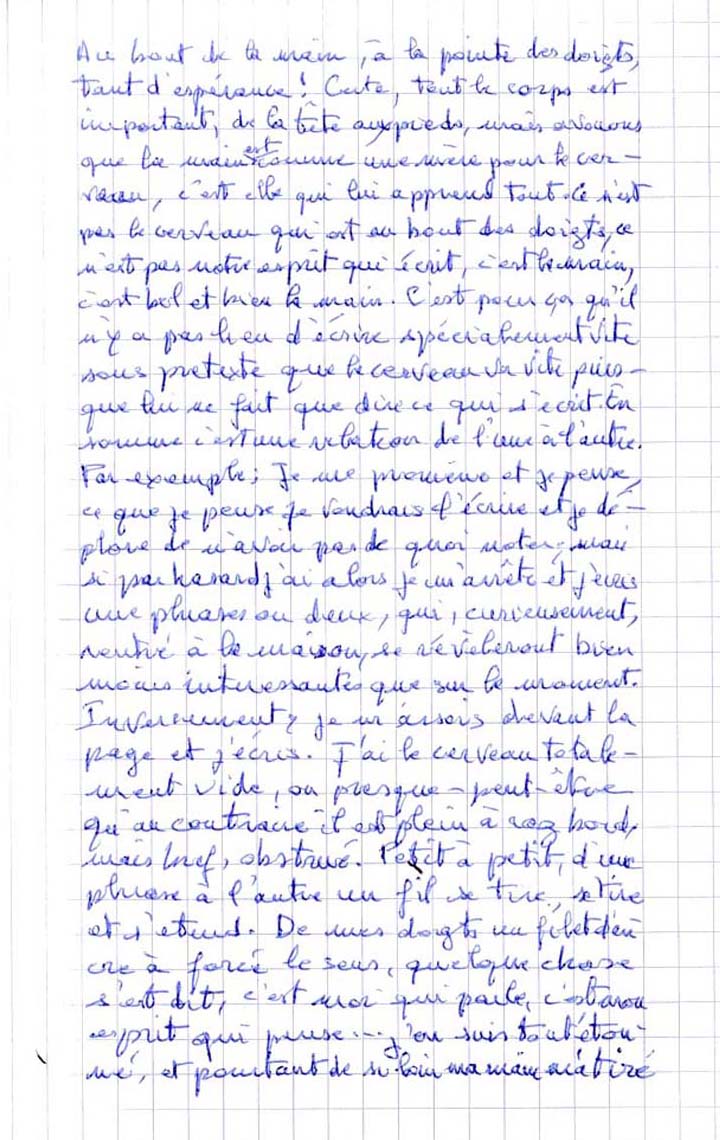 Au bout de la main, à la pointe des doigts,
tant d'espérance! Certe, tout le corps est
important, de la tête aux pieds, mais avouons
que la main est comme une mère pour le cer-
veau, c'est elle qui lui apprend tout. Ce n'est
pas le cerveau qui est au bout des doigts, ce
n'est pas notre esprit qui écrit, c'est la main,
c'est bel et bien la main. C'est pour ça qu'il
n'y a pas lieu d'écrire spécialement vite
sous pretexte que le cerveau va vite puis-
que lui ne fait que dire ce qui s'écrit. En
somme c'est une relation de l'une à l'autre.
Par exemple; Je me promène et je pense,
ce que je pense je voudrais l'écrire et je dé-
plore de n'avoir pas de quoi noter, mais
si par hasard j'ai alors je m'arrête et j'écris
une phrases ou deux, qui, curieusement,
rentré à la maison, se révéleront bien
moins interessantes que sur le moment.
Inversement, je m'assois devant la
page et j'écris. J'ai le cerveau totale-
ment vide, ou presque - peut-être
qu'au contraire il est plein à raz bord,
mais bref, obstrué. Petit à petit, d'une
phrase à l'autre un fil se tire, se tire
et s'étend. De mes doigts un filet d'en
cre à forcé le sens, quelque chose
s'est dit, c'est moi qui parle, c'est mon
esprit qui pense... j'en suis tout éton-
né, et pourtant de si loin ma main m'a tiré